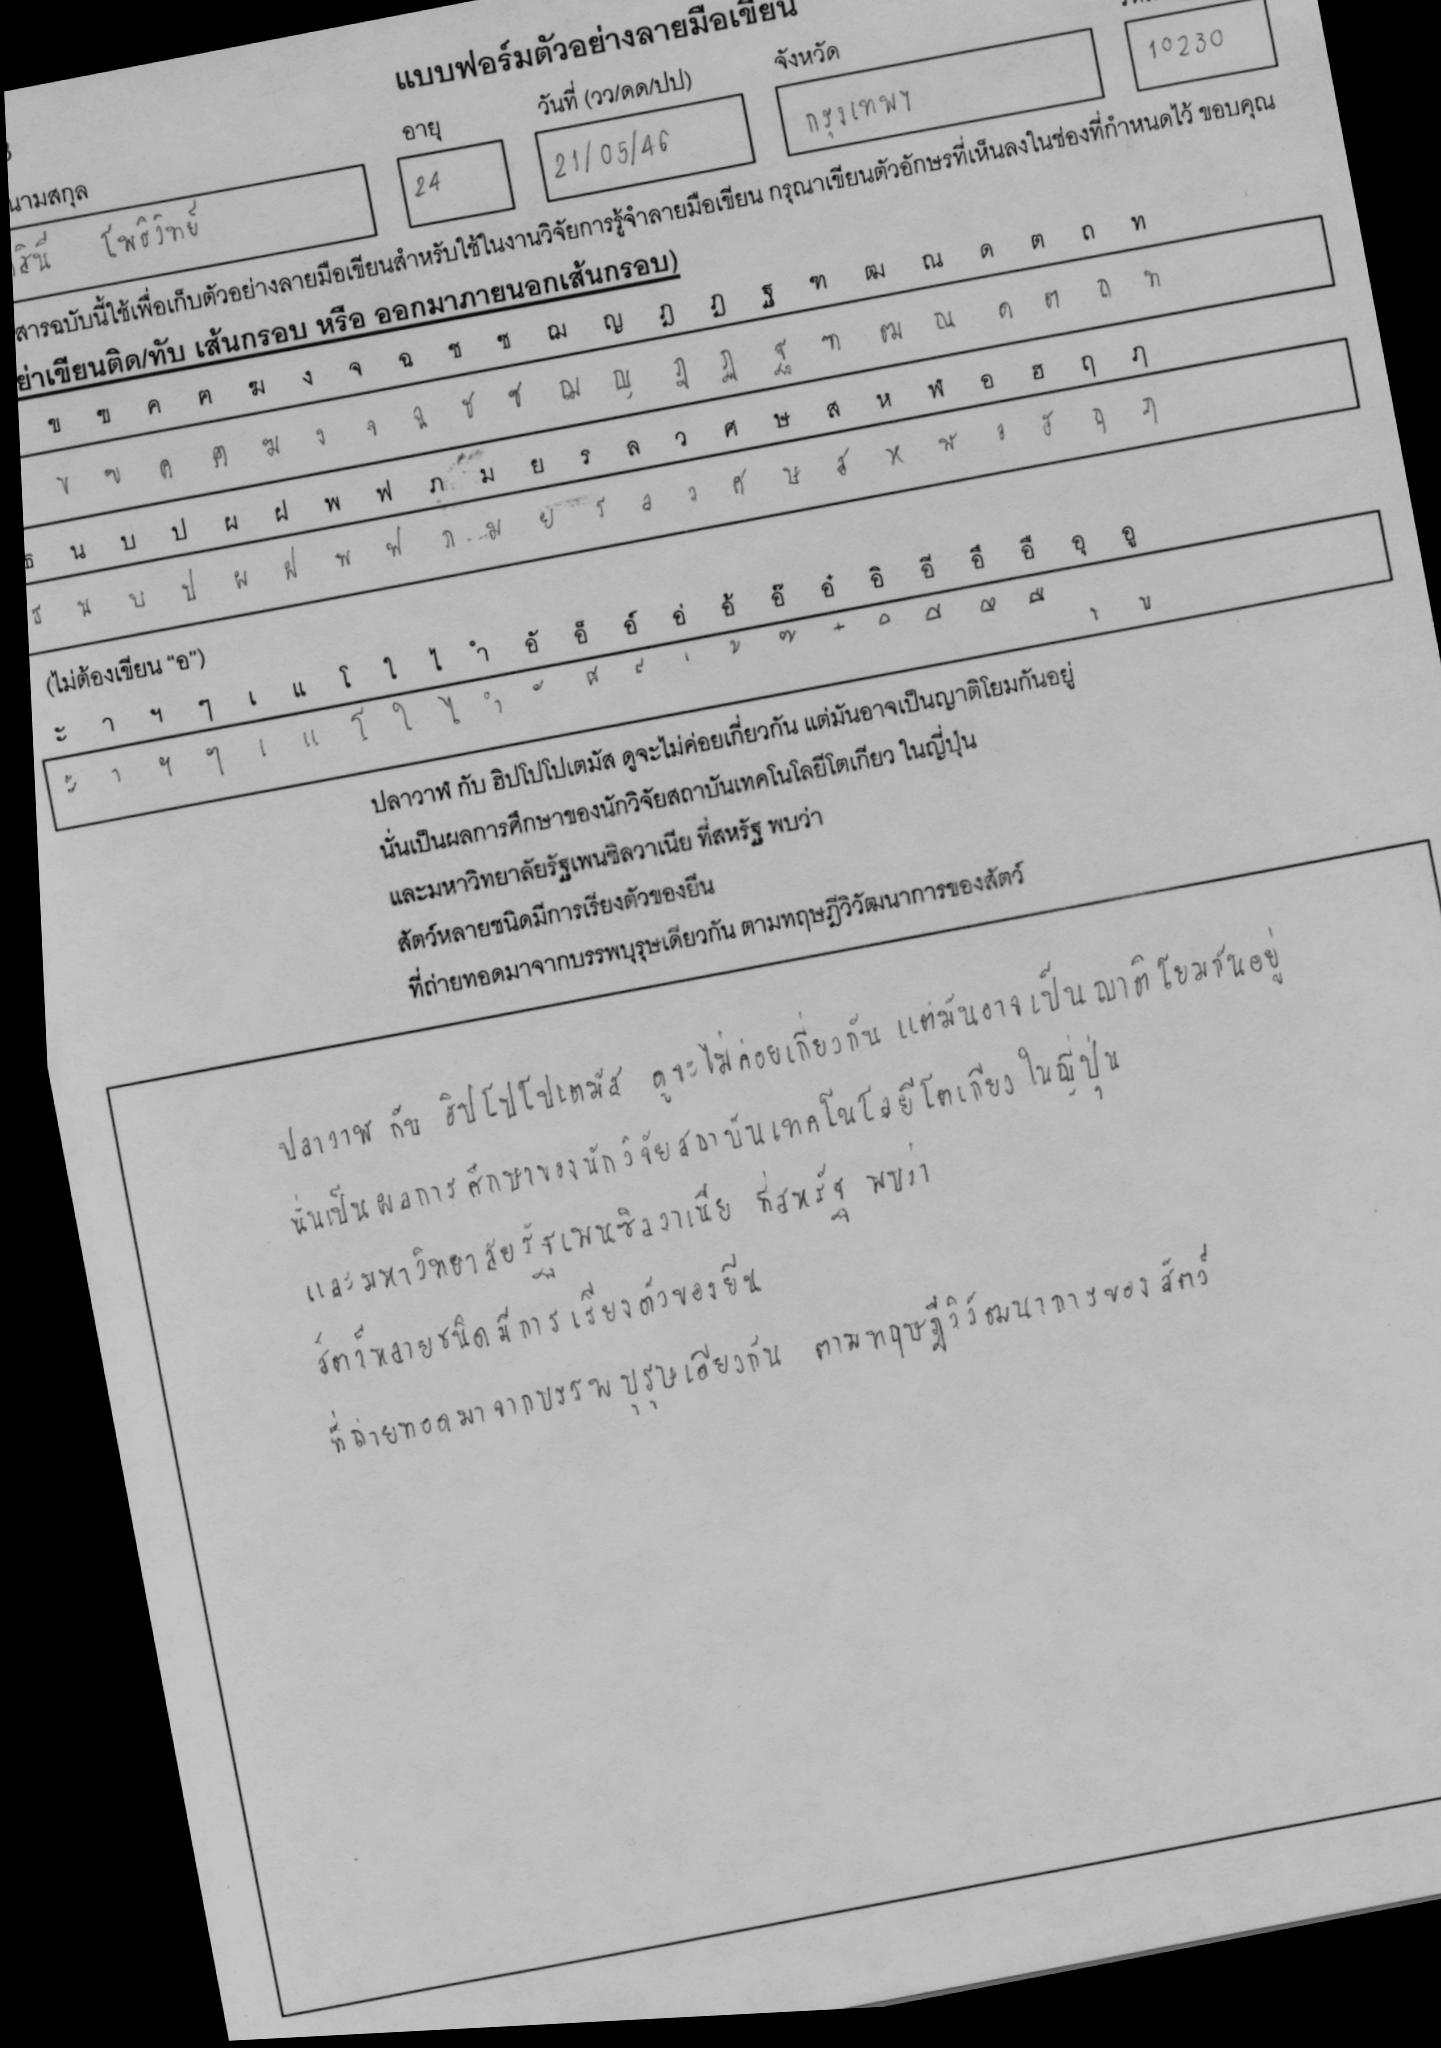 แบบฟอร์มตัวอย่างลายมือเขียน
นามสกุล อายุ วันที่ (วว/ดด/ปป) จังหวัด
โพธิวิทย์ 24 21/05/46 กรุงเทพฯ 10230
สารฉบับนี้ใช้เพื่อเก็บตัวอย่างลายมือเขียนสำหรับใช้ในงานวิจัยการรู้จำลายมือเขียน กรุณาเขียนตัวอักษรที่เห็นลงในช่องที่กำหนดไว้ ขอบคุณ
ย่าเขียนติด/ทับ เส้นกรอบ หรือ ออกมาภายนอกเส้นกรอบ)
ข ฃ ค ฅ ฆ ง จ ฉ ช ซ ฌ ญ ฎ ฏ ฐ ฑ ฒ ณ ด ต ถ ท
ข ฃ ค ฅ ฆ ง จ ฉ ช ซ ฌ ญ ฎ ฏ ฐ ฑ ฒ ณ ด ต ถ ท
ธ น บ ป ผ ฝ พ ฟ ภ ม ย ร ล ว ศ ษ ส ห ฬ อ ฮ ฤ ฦ
ธ น บ ป ผ ฝ พ ฟ ภ ม ย ร ล ว ศ ษ ส ห ฬ อ ฮ ฤ ฦ
(ไม่ต้องเขียน "อ")
ะ า ฯ ๆ เ แ โ ใ ไ ำ อั อ็ อ์ อ่ อ้ อ๊ อ๋ อิ อี อึ อื อุ อู
ะ า ฯ ๆ เ แ โ ใ ไ ำ ั ็ ์ ่ ้ ๊ ๋ ิ ี ึ ื ุ ู
ปลาวาฬ กับ ฮิปโปโปเตมัส ดูจะไม่ค่อยเกี่ยวกัน แต่มันอาจเป็นญาติโยมกันอยู่
นั่นเป็นผลการศึกษาของนักวิจัยสถาบันเทคโนโลยีโตเกียว ในญี่ปุ่น
และมหาวิทยาลัยรัฐเพนซิลวาเนีย ที่สหรัฐ พบว่า
สัตว์หลายชนิดมีการเรียงตัวของยีน
ที่ถ่ายทอดมาจากบรรพบุรุษเดียวกัน ตามทฤษฎีวิวัฒนาการของสัตว์
ปลาวาฬ กับ ฮิปโปโปเตมัส ดูจะไม่ค่อยเกี่ยวกัน แต่มันอาจเป็นญาติโยมกันอยู่
นั่นเป็นผลการศึกษาของนักวิจัยสถาบันเทคโนโลยีโตเกียว ในญี่ปุ่น
และมหาวิทยาลัยรัฐเพนซิลวาเนีย ที่สหรัฐ พบว่า
สัตว์หลายชนิดมีการเรียงตัวของยีน
ที่ถ่ายทอดมาจากบรรพบุรุษเดียวกัน ตามทฤษฎีวิวัฒนาการของสัตว์